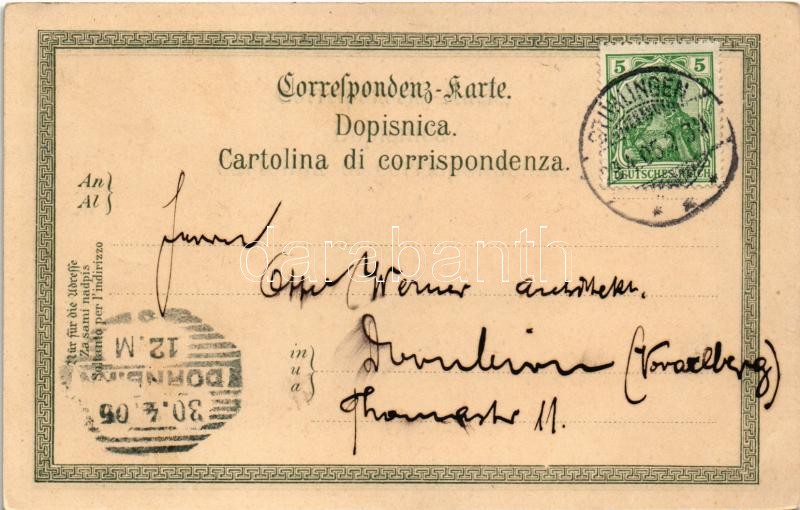 Correspondenz-Karte.
Dopisnica.
Cartolina di corrispondenza.
5 5
DEUTSCHES REICH
STÜHLINGEN
An
Al
Herrn
Otto Werner Architekt.
in
u
a
Dornbirn (Vorarlberg)
Thomastr 11.
Nur für die Adresse
Za sami nadpis
Soltanto per l'indirizzo
30.4.05
DORNB
12.M
darabanth